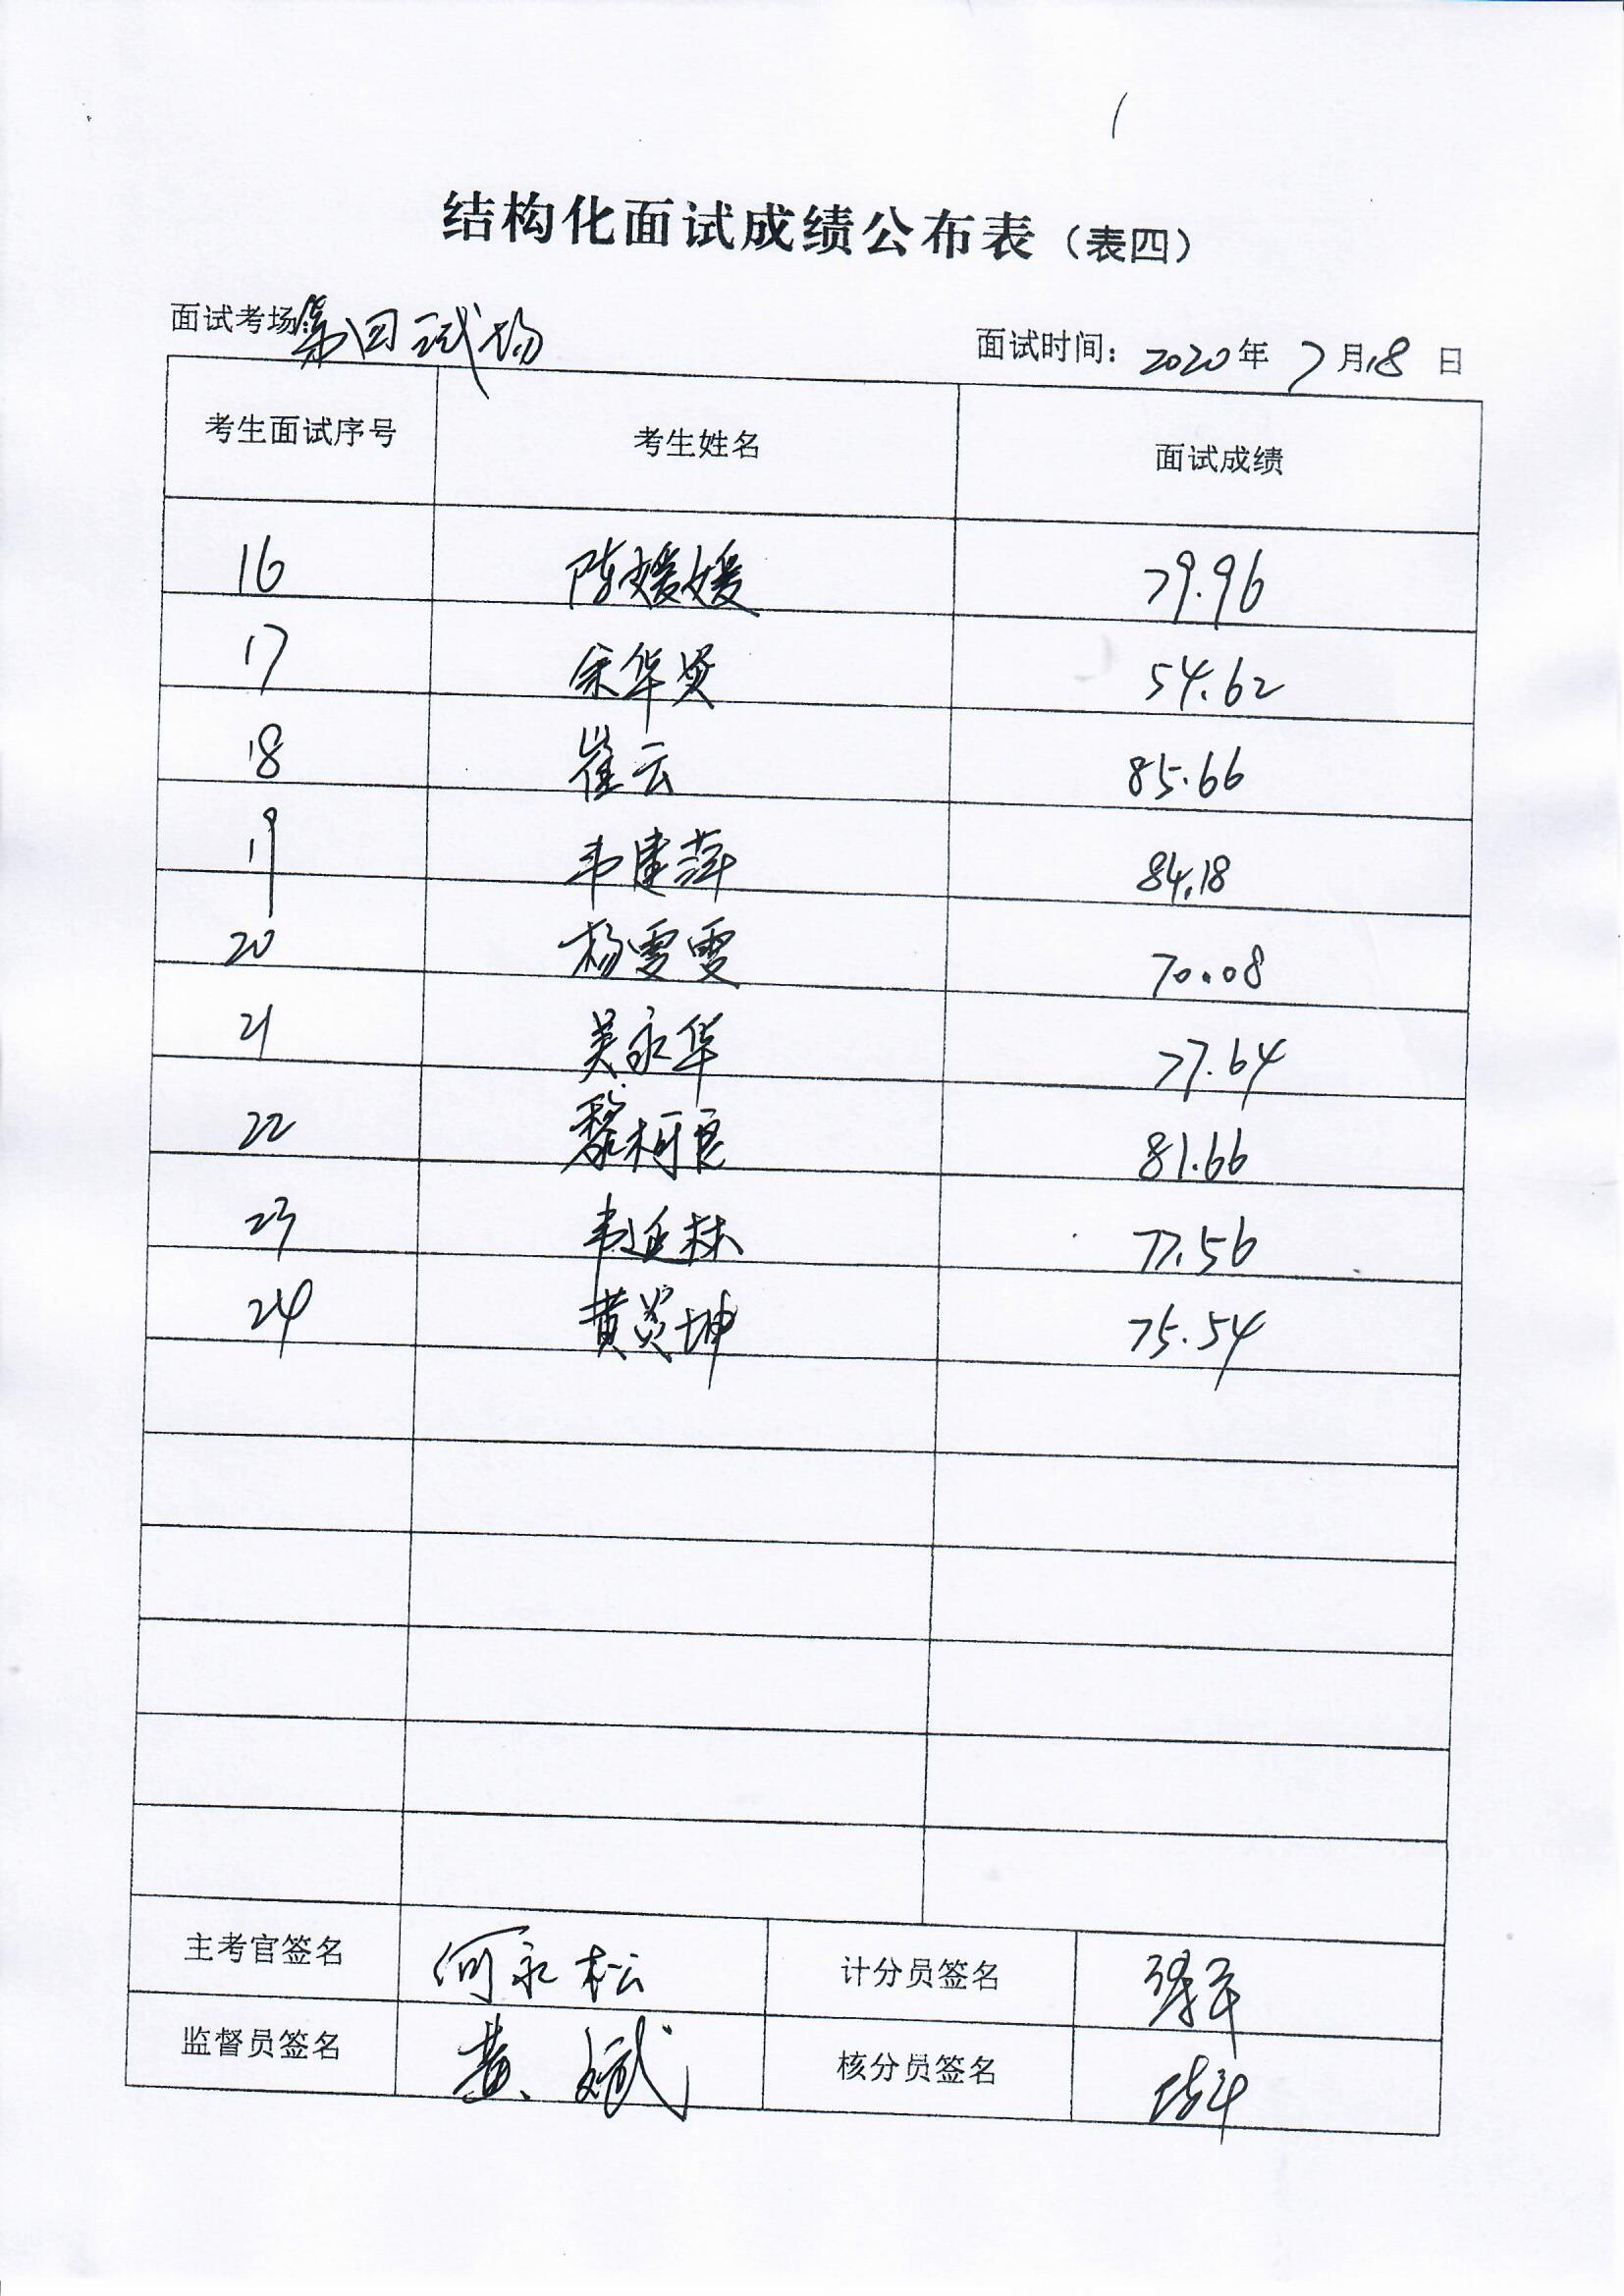 结构化面试成绩公布表（表四）
面试考场 第四试场 面试时间：2020年7月18日
考生面试序号 考生姓名 面试成绩
16 陈媛媛 79.96
17 宋华贤 54.62
18 崔云 85.66
19 韦建萍 84.18
20 杨雯雯 70.08
21 吴永华 77.64
22 黎柯良 81.66
23 韦延林 77.56
24 黄炎坤 75.54
主考官签名 何永松 计分员签名
监督员签名 黄斌 核分员签名